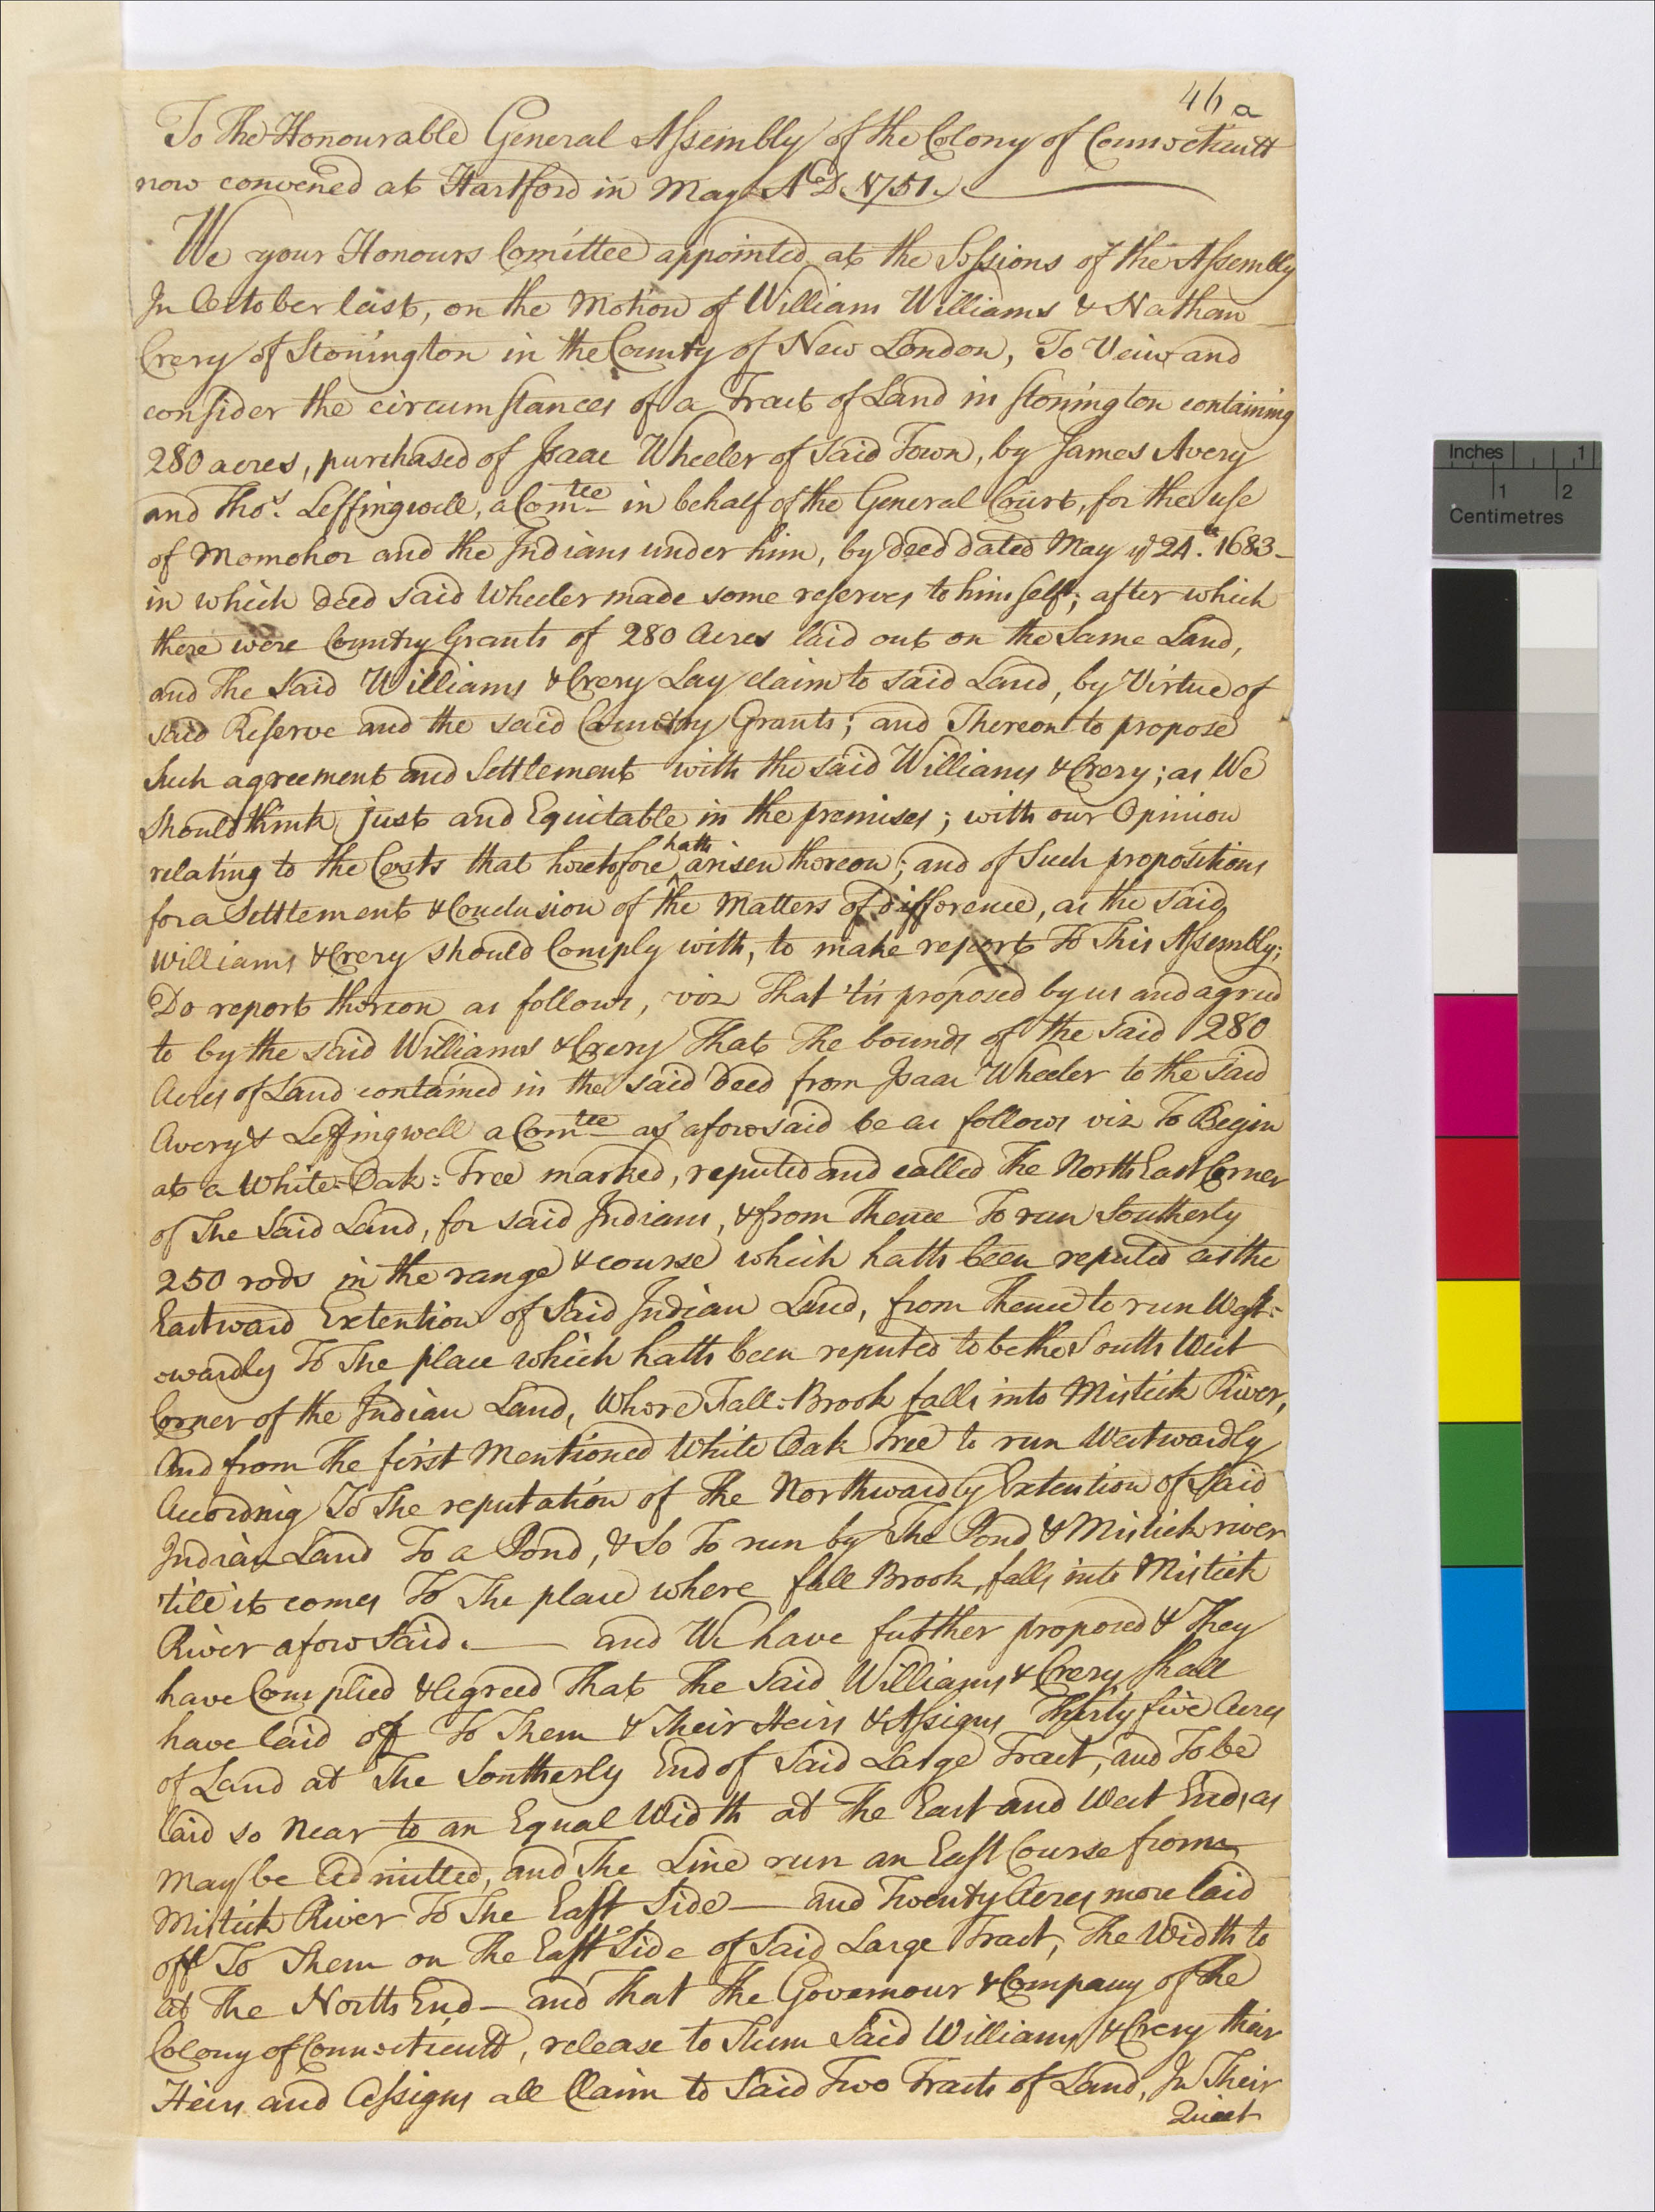 46a
To The Honourable General Assembly of the Colony of Connecticutt
now convened at Hartford in May A.D. 1751.
We your Honours Comittee appointed at the Sessions of the Assembly
In October last, on the Motion of William Williams & Nathan
Crery of Stonington in the County of New London, To Veiw and
consider the circumstances of a Tract of Land in Stonington containing
280 acres, purchased of Isaac Wheeler of said Town, by James Avery
and Thos. Leffingwell, a Comtee in behalf of the General Court, for the use
of Momohor and the Indians under him, by deed dated May ye 24.th 1683
in which deed said Wheeler made some reserves to himself; after which
there were Country Grants of 280 Acres laid out on the Same Land,
and The said Williams & Crery Lay claim to said Land, by Virtue of
said Reserve and the said Country Grants; and Thereon to propose
Such agreement and Settlement with the said Williams & Crery; as We
Should think just and Equitable in the premises; with our Opinion
relating to the Costs that heretofore hath arisen thereon; and of Such propositions
for a Settlement & Conclusion of the Matters of difference, as the said
Williams & Crery should Comply with, to make report To This Assembly;
Do report thereon as follows, viz That 'tis proposed by us and agreed
to by the said Williams & Crery That The bounds of the said 280
Acres of Land contained in the said Deed from Isaac Wheeler to the said
Avery & Leffingwell a Comtee as aforesaid be as follows viz To Begin
at a White-Oak-Tree marked, reputed and called The North East Corner
of The Said Land, for said Indians, & from Thence To run Southerly
250 rods in the range & course which hath been reputed as the
Eastward Extention of Said Indian Land, from Thence to run West-
-wardly To The place which hath been reputed to be the South West
Corner of the Indian Land, Where Fall-Brook falls into Mistick River,
And from The first Mentioned White Oak Tree to run Westwardly
According To The reputation of The Northwardly Extention of Said
Indian Land To a Pond, & So To run by The Pond & Mistick river
till it comes To The place where fall Brook, falls into Mistick
River aforesaid. and We have further proposed & They
have Complied & Agreed That The Said Williams & Crery shall
have laid off To Them & Their Heirs & Assigns Thirty five Acres
of Land at The Southerly End of Said Large Tract, and To be
laid so Near to an Equal Width at The East and West Ends as
may be Admitted, and The Line run an East Course from
Mistick River To The East Side — and Twenty Acres more laid
off To Them on The East Side of Said Large Tract, The Width to
at The North End — and That The Governour & Company of The
Colony of Connecticutt, release to Them Said Williams, & Crery their
Heirs and Assigns all Claim to Said Two Tracts of Land, In Their
Quiet
Inches 1
1 2
Centimetres